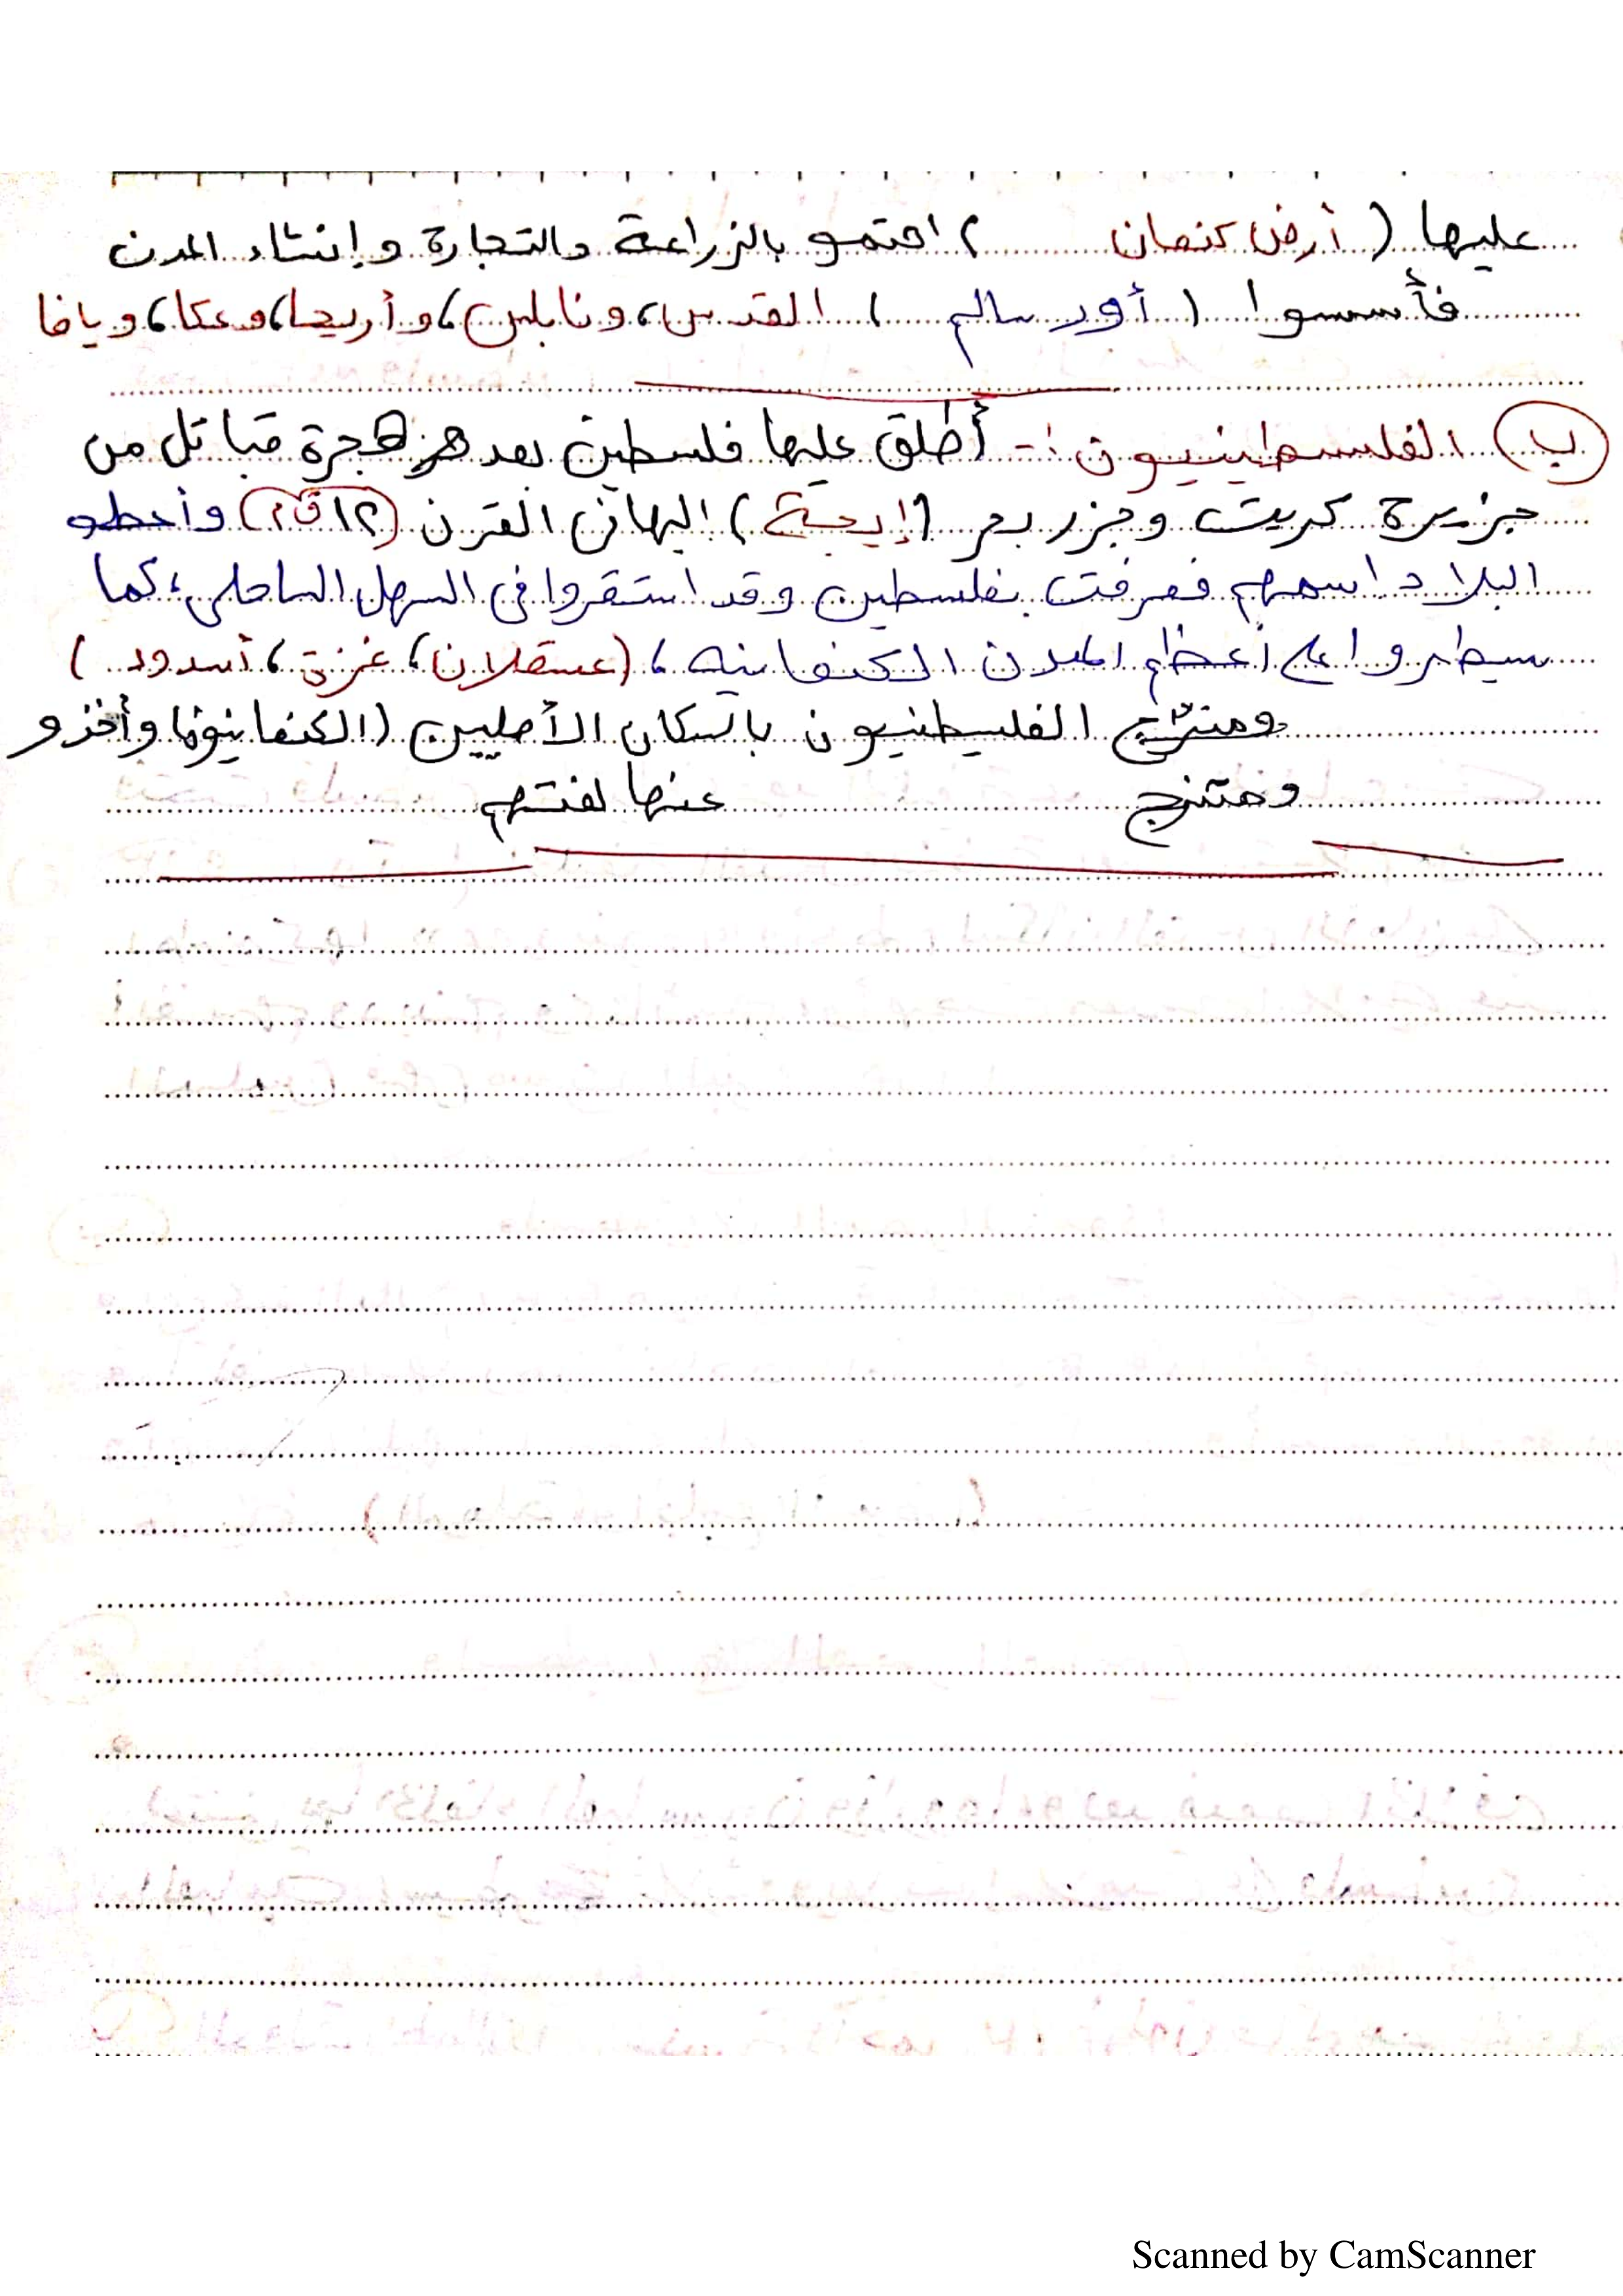 عليها (أرض كنعان ) اهتمو بالزراعة والتجارة وإنشاء المدن
فأسسوا (أور سالم ) القدس، ونابلس، وأريحا، وعكا، ويافا
ب الفلسطينيون :- أطلق عليها فلسطين بعد هجرة قبائل من
جزيرة كريت وجزر بحر (إيجة) اليها في القرن (١٢ ق م) وأعطو
البلاد اسمهم فعرفت بفلسطين وقد استقروا في السهل الساحلي، كما
سيطروا على أعظم المدن الكنعانيه، (عسقلان، غزة، أسدود )
ومتزج الفليسطنيون بالسكان الأصليين (الكنعانيون) وأخذو
ومتزج عنها لغتهم
Scanned by CamScanner